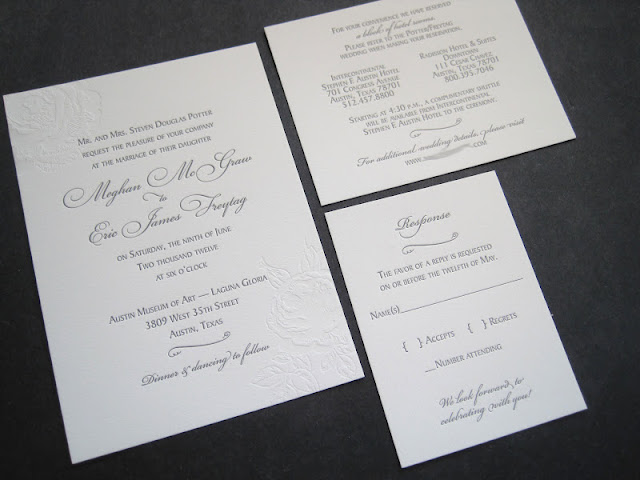 Mr. and Mrs. Steven Douglas Potter
request the pleasure of your company
at the marriage of their daughter
Meghan McGraw
to
Eric James Freytag
on Saturday, the ninth of June
Two thousand twelve
at six o'clock
Austin Museum of Art — Laguna Gloria
3809 West 35th Street
Austin, Texas
Dinner & dancing to follow
For your convenience we have reserved
a block of hotel rooms.
Please refer to the Potter/Freytag
wedding when making your reservation.
Intercontinental
Stephen F. Austin Hotel
701 Congress Avenue
Austin, Texas 78701
512.457.8800
Radisson Hotel & Suites
Downtown
111 Cesar Chavez
Austin, Texas 78701
800.395.7046
Starting at 4:30 p.m., a complimentary shuttle
will be available from Intercontinental
Stephen F. Austin Hotel to the ceremony.
For additional wedding details, please visit
www. .com
Response
The favor of a reply is requested
on or before the twelfth of May.
Name(s)
{ } Accepts { } Regrets
_Number attending
We look forward to
celebrating with you!